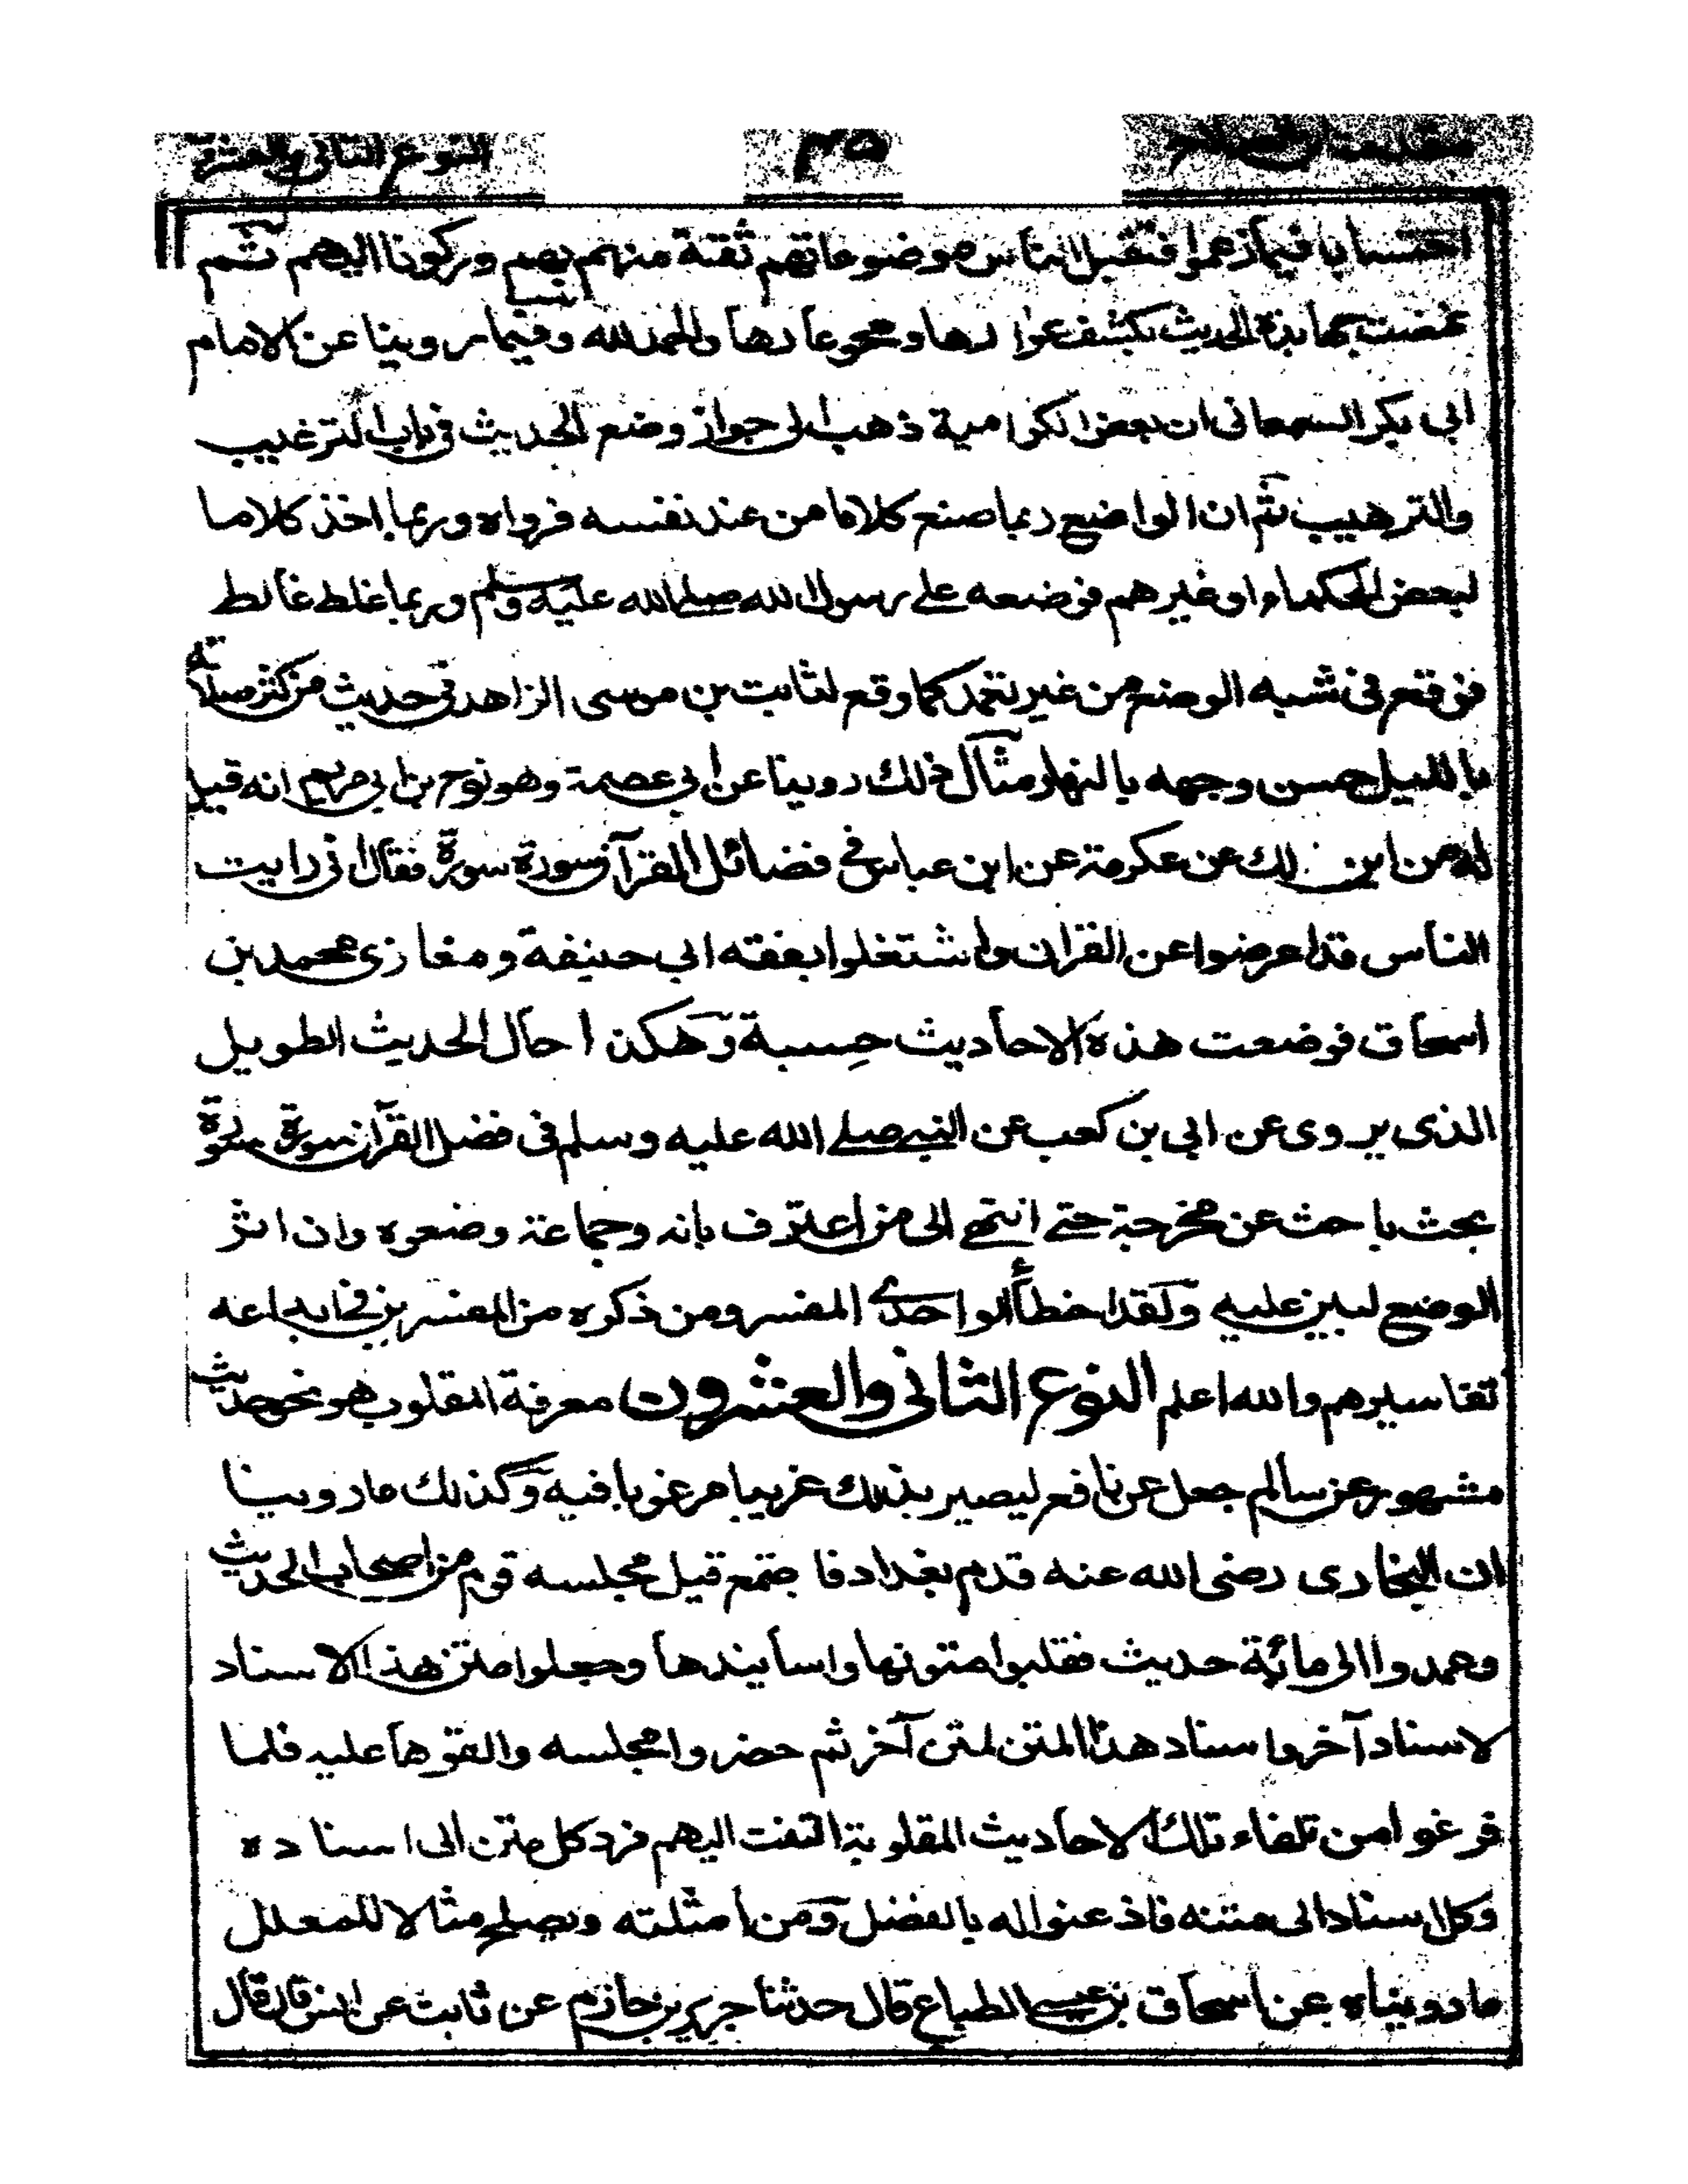 مقدمة ابن الصلاح ٤٥ النوع الثاني والعشرون
احتسابا فيما زعموا فتقبل الناس موضوعاتهم ثقة منهم بهم وركونا اليهم ثم
نهضت جهابذة الحديث بكشف عوارها ومحو عارها والحمد لله وفيما روينا عن الامام
ابي بكر السمعاني ان بعض الكرامية ذهب الى جواز وضع الحديث في باب الترغيب
والترهيب ثم ان الواضع ربما صنع كلاما من عند نفسه فرواه وربما اخذ كلاما
لبعض الحكماء او غيرهم فوضعه على رسول الله صلى الله عليه وسلم وربما غلط غالط
فوقع في شبه الوضع من غير تعمد كما وقع لثابت بن موسى الزاهد في حديث من كثر صلاته
بالليل حسن وجهه بالنهار مثال ذلك روينا عن ابي عصمة وهو نوح بن ابي مريم انه قيل
له من اين لك عن عكرمة عن ابن عباس في فضائل القرآن سورة سورة فقال اني رايت
الناس قد اعرضوا عن القران واشتغلوا بفقه ابي حنيفة ومغازى محمد بن
اسحاق فوضعت هذه الاحاديث حسبة وهكذا حال الحديث الطويل
الذى يروى عن ابي بن كعب عن النبي صلى الله عليه وسلم في فضل القرآن سورة سورة
بحث باحث عن مخرجة حتى انتهى الى من اعترف بانه وجماعة وضعوه وان اثر
الوضع لبين عليه ولقد اخطأ الواحدى المفسر ومن ذكره من المفسرين في ايداعه
تفاسيرهم والله اعلم النوع الثاني والعشرون معرفة المقلوب هو نحو حديث
مشهور عن سالم جعل عن نافع ليصير بذلك غريبا مرغوبا فيه وكذلك ما روينا
ان البخارى رضى الله عنه قدم بغداد فاجتمع قبل مجلسه قوم من اصحاب الحديث
وعمدوا الى مائة حديث فقلبوا متونها واسانيدها وجعلوا متن هذا الاسناد
لاسناد آخر واسناد هذا المتن لمتن آخر ثم حضروا مجلسه والقوها عليه فلما
فرغوا من تلقاء تلك الاحاديث المقلوبة التفت اليهم فرد كل متن الى اسناده
وكل اسناد الى متنه فاذعنوا له بالفضل ومن امثلته ويصلح مثالا للمعلل
ما رويناه عن اسحاق بن عيسى الطباع قال حدثنا جرير بن حازم عن ثابت عن انس قال قال